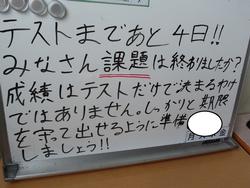 テストまであと4日!!
みなさん課題は終わりましたか?
成績はテストだけで決まるわけ
ではありません。しっかりと期限
を守って出せるように準備
しましょう!!
月